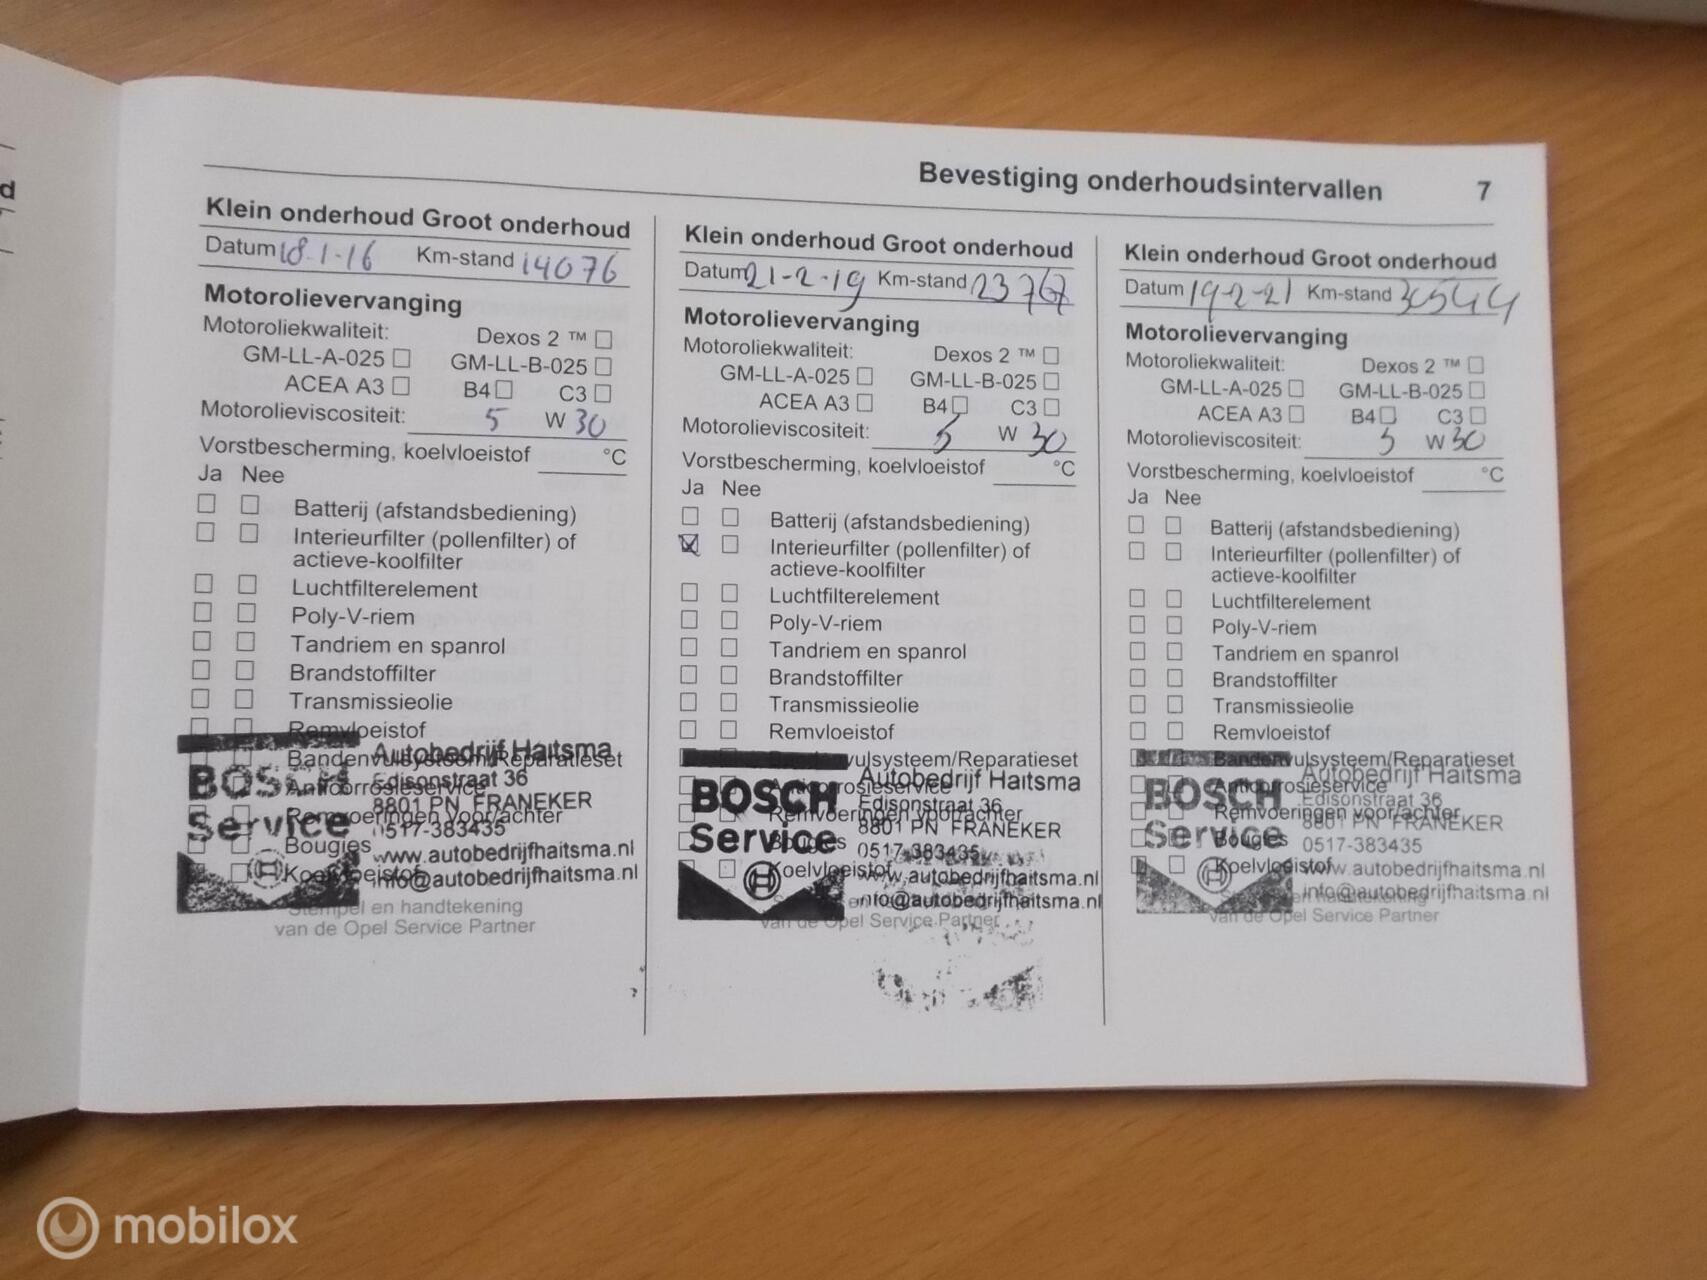 d
Bevestiging onderhoudsintervallen 7
Klein onderhoud Groot onderhoud
Datum 18-1-16 Km-stand 14076
Motorolievervanging
Motoroliekwaliteit: Dexos 2 ™ ☐
GM-LL-A-025 ☐ GM-LL-B-025 ☐
ACEA A3 ☐ B4 ☐ C3 ☐
Motorolieviscositeit: 5 W 30
Vorstbescherming, koelvloeistof °C
Ja Nee
☐ ☐ Batterij (afstandsbediening)
☐ ☐ Interieurfilter (pollenfilter) of
actieve-koolfilter
☐ ☐ Luchtfilterelement
☐ ☐ Poly-V-riem
☐ ☐ Tandriem en spanrol
☐ ☐ Brandstoffilter
☐ ☐ Transmissieolie
☐ ☐ Remvloeistof
Bandenvulsysteem/Reparatieset
Anticorrosieservice
Remvoeringen voor/achter
Bougies
Koelvloeistof
Stempel en handtekening
van de Opel Service Partner
BOSCH
Service
Autobedrijf Haitsma
Edisonstraat 36
8801 PN FRANEKER
0517-383435
www.autobedrijfhaitsma.nl
info@autobedrijfhaitsma.nl
Klein onderhoud Groot onderhoud
Datum 21-2-19 Km-stand 23767
Motorolievervanging
Motoroliekwaliteit: Dexos 2 ™ ☐
GM-LL-A-025 ☐ GM-LL-B-025 ☐
ACEA A3 ☐ B4 ☐ C3 ☐
Motorolieviscositeit: 5 W 30
Vorstbescherming, koelvloeistof °C
Ja Nee
☐ ☐ Batterij (afstandsbediening)
☒ ☐ Interieurfilter (pollenfilter) of
actieve-koolfilter
☐ ☐ Luchtfilterelement
☐ ☐ Poly-V-riem
☐ ☐ Tandriem en spanrol
☐ ☐ Brandstoffilter
☐ ☐ Transmissieolie
☐ ☐ Remvloeistof
Bandenvulsysteem/Reparatieset
Anticorrosieservice
Remvoeringen voor/achter
Bougies
Koelvloeistof
van de Opel Service Partner
BOSCH
Service
Autobedrijf Haitsma
Edisonstraat 36
8801 PN FRANEKER
0517-383435
www.autobedrijfhaitsma.nl
info@autobedrijfhaitsma.nl
Klein onderhoud Groot onderhoud
Datum 19-2-21 Km-stand 30544
Motorolievervanging
Motoroliekwaliteit: Dexos 2 ™ ☐
GM-LL-A-025 ☐ GM-LL-B-025 ☐
ACEA A3 ☐ B4 ☐ C3 ☐
Motorolieviscositeit: 5 W 30
Vorstbescherming, koelvloeistof °C
Ja Nee
☐ ☐ Batterij (afstandsbediening)
☐ ☐ Interieurfilter (pollenfilter) of
actieve-koolfilter
☐ ☐ Luchtfilterelement
☐ ☐ Poly-V-riem
☐ ☐ Tandriem en spanrol
☐ ☐ Brandstoffilter
☐ ☐ Transmissieolie
☐ ☐ Remvloeistof
Bandenvulsysteem/Reparatieset
Anticorrosieservice
Remvoeringen voor/achter
Bougies
Koelvloeistof
van de Opel Service Partner
BOSCH
Service
Autobedrijf Haitsma
Edisonstraat 36
8801 PN FRANEKER
0517-383435
www.autobedrijfhaitsma.nl
info@autobedrijfhaitsma.nl
mobilox